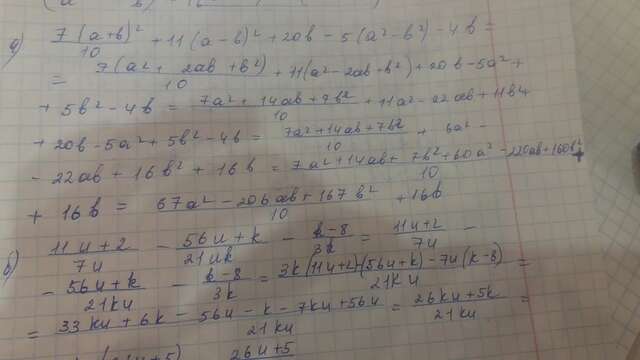 a) 7(a+b)²/10 + 11(a-b)² + 20b - 5(a²-b²) - 4b =
= 7(a²+2ab+b²)/10 + 11(a²-2ab+b²) + 20b - 5a² +
+ 5b² - 4b = (7a²+14ab+7b²)/10 + 11a² - 22ab + 11b²
+ 20b - 5a² + 5b² - 4b = (7a²+14ab+7b²)/10 + 6a² -
- 22ab + 16b² + 16b = (7a²+14ab+7b²+60a²-220ab+160b²)/10 +
+ 16b = (67a²-206ab+167b²)/10 + 16b
б) (11u+2)/7u - (56u+k)/21uk - (k-8)/3k = (11u+2)/7u -
- (56u+k)/21ku - (k-8)/3k = (3k(11u+2)-(56u+k)-7u(k-8))/21ku =
= (33ku+6k-56u-k-7ku+56u)/21ku = (26ku+5k)/21ku =
26u+5